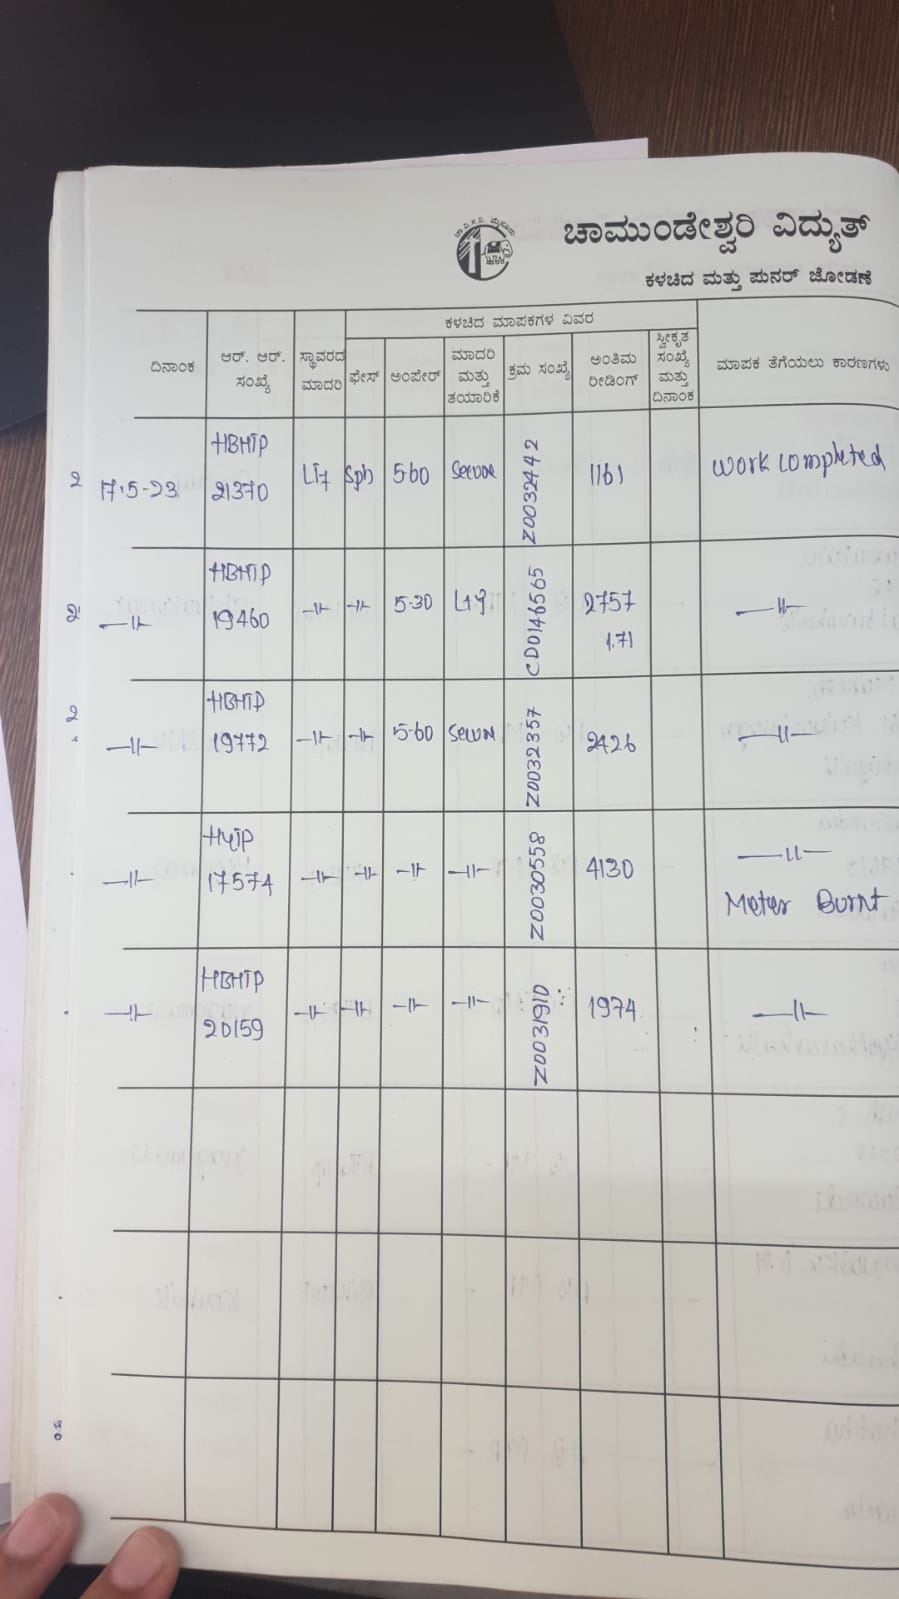 ಚಾಮುಂಡೇಶ್ವರಿ ವಿದ್ಯುತ್
ಕಳಚಿದ ಮತ್ತು ಪುನರ್ ಜೋಡಣೆ
ಕಳಚಿದ ಮಾಪಕಗಳ ವಿವರ
ದಿನಾಂಕ
ಆರ್. ಆರ್.
ಸಂಖ್ಯೆ
ಸ್ಥಾವರದ
ಮಾದರಿ
ಫೇಸ್
ಅಂಪೇರ್
ಮಾದರಿ
ಮತ್ತು
ತಯಾರಿಕೆ
ಕ್ರಮ ಸಂಖ್ಯೆ
ಅಂತಿಮ
ರೀಡಿಂಗ್
ಸ್ವೀಕೃತ
ಸಂಖ್ಯೆ
ಮತ್ತು
ದಿನಾಂಕ
ಮಾಪಕ ತೆಗೆಯಲು ಕಾರಣಗಳು
2 17-5-23 HBHTP
21370 LT7 Sph 560 Secure Z0032442 1161 work completed
2 —11— HBHTP
19460 —11— —11— 5-30 L&G CD0146565 2757 —11—
1.71
2 —11— HBHTP
19772 —11— —11— 5-60 Secure Z0032357 2426 —11—
—11— 17574 —11— —11— —11— —11— Z0030558 4130 —11—
Meter Burnt
—11— HBHTP
20159 —11— —11— —11— —11— Z0031910 1974 —11—